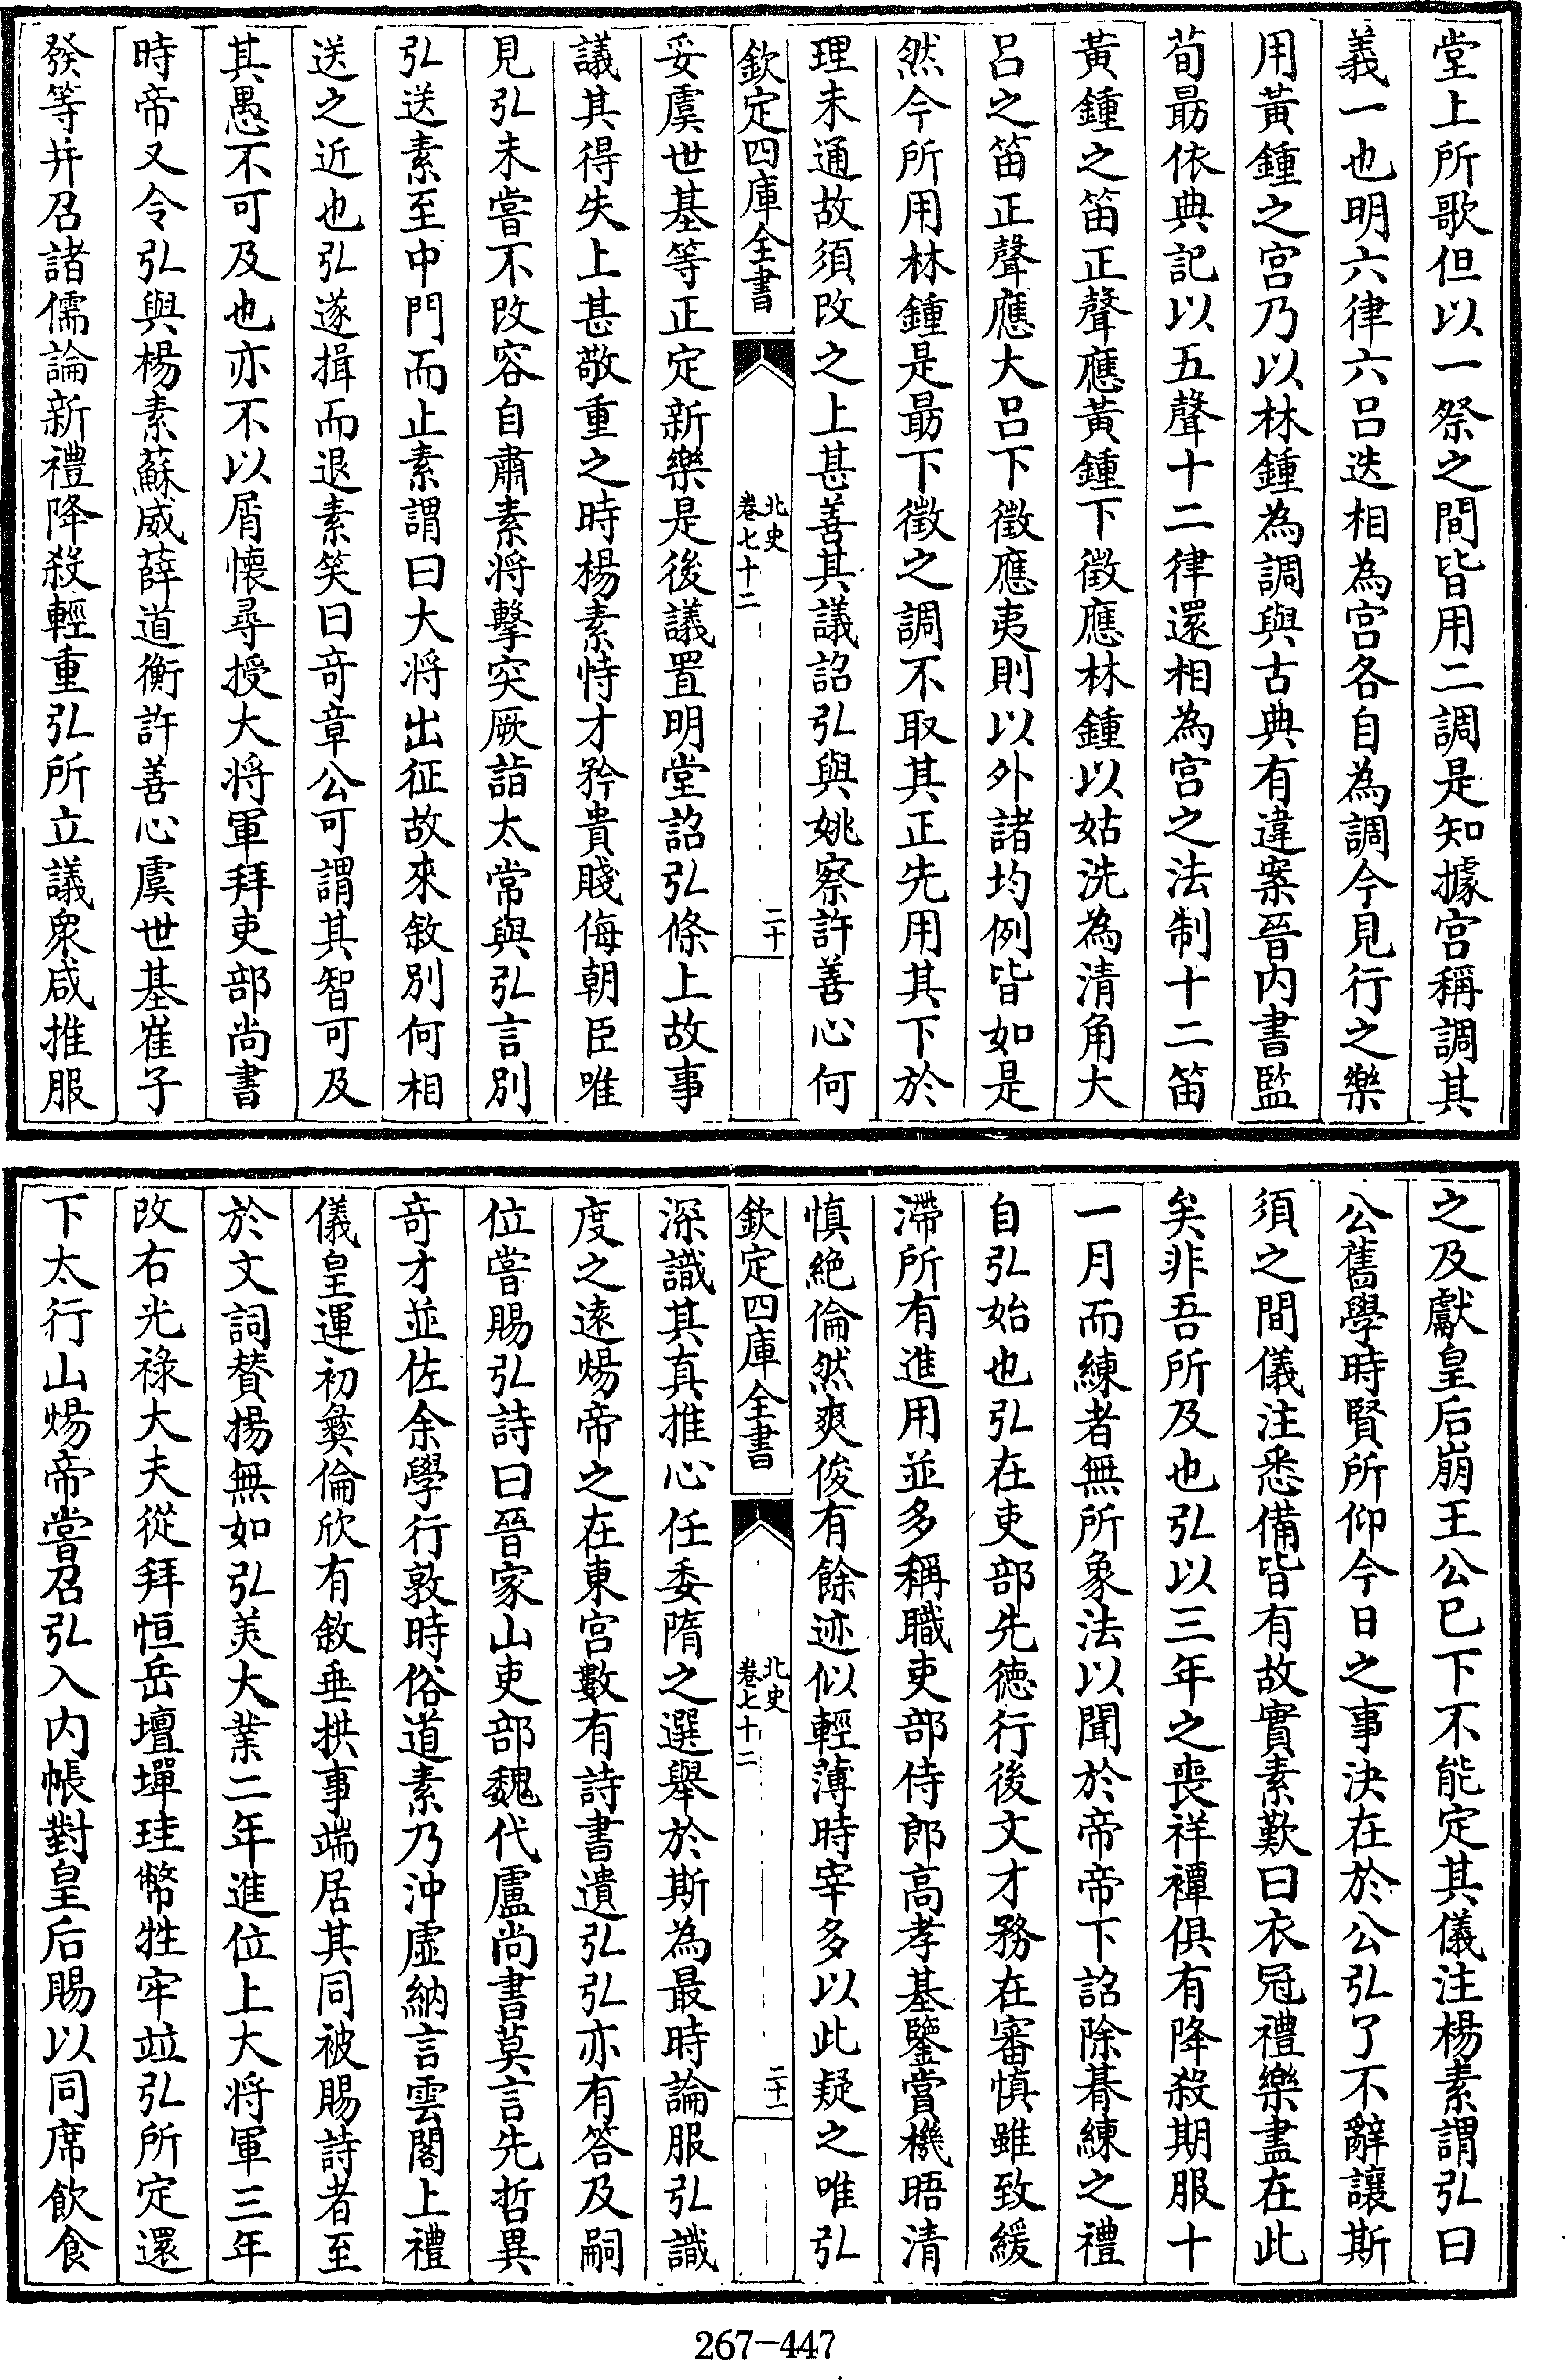 堂上所歌但以一祭之間皆用二調是知據宮稱調其
義一也明六律六呂迭相為宮各自為調今見行之樂
用黃鍾之宮乃以林鍾為調與古典有違案晉內書監
荀勗依典記以五聲十二律還相為宮之法制十二笛
黃鍾之笛正聲應黃鍾下徵應林鍾以姑洗為清角大
呂之笛正聲應大呂下徵應夷則以外諸均例皆如是
然今所用林鍾是勗下徵之調不取其正先用其下於
理未通故須改之上甚善其議詔弘與姚察許善心何
欽定四庫全書
北史
卷七十二
二十
妥虞世基等正定新樂是後議置明堂詔弘條上故事
議其得失上甚敬重之時楊素恃才矜貴賤侮朝臣唯
見弘未嘗不改容自肅素將擊突厥詣太常與弘言別
弘送素至中門而止素謂曰大將出征故來敘別何相
送之近也弘遂揖而退素笑曰奇章公可謂其智可及
其愚不可及也亦不以屑懷尋授大將軍拜吏部尚書
時帝又令弘與楊素蘇威薛道衡許善心虞世基崔子
發等并召諸儒論新禮降殺輕重弘所立議衆咸推服
之及獻皇后崩王公已下不能定其儀注楊素謂弘曰
公舊學時賢所仰今日之事決在於公弘了不辭讓斯
須之間儀注悉備皆有故實素歎曰衣冠禮樂盡在此
矣非吾所及也弘以三年之喪祥禫俱有降殺期服十
一月而練者無所象法以聞於帝帝下詔除朞練之禮
自弘始也弘在吏部先德行後文才務在審慎雖致緩
滯所有進用並多稱職吏部侍郎高孝基鑒賞機晤清
慎絕倫然爽俊有餘迹似輕薄時宰多以此疑之唯弘
欽定四庫全書
北史
卷七十二
二十一
深識其真推心任委隋之選舉於斯為最時論服弘識
度之遠煬帝之在東宮數有詩書遺弘弘亦有答及嗣
位嘗賜弘詩曰晉家山吏部魏代盧尚書莫言先哲異
奇才並佐余學行敦時俗道素乃沖虛納言雲閣上禮
儀皇運初彜倫欣有敘垂拱事端居其同被賜詩者至
於文詞贊揚無如弘美大業二年進位上大將軍三年
改右光祿大夫從拜恒岳壇墠珪幣牲牢竝弘所定還
下太行山煬帝嘗召弘入內帳對皇后賜以同席飲食
267-447